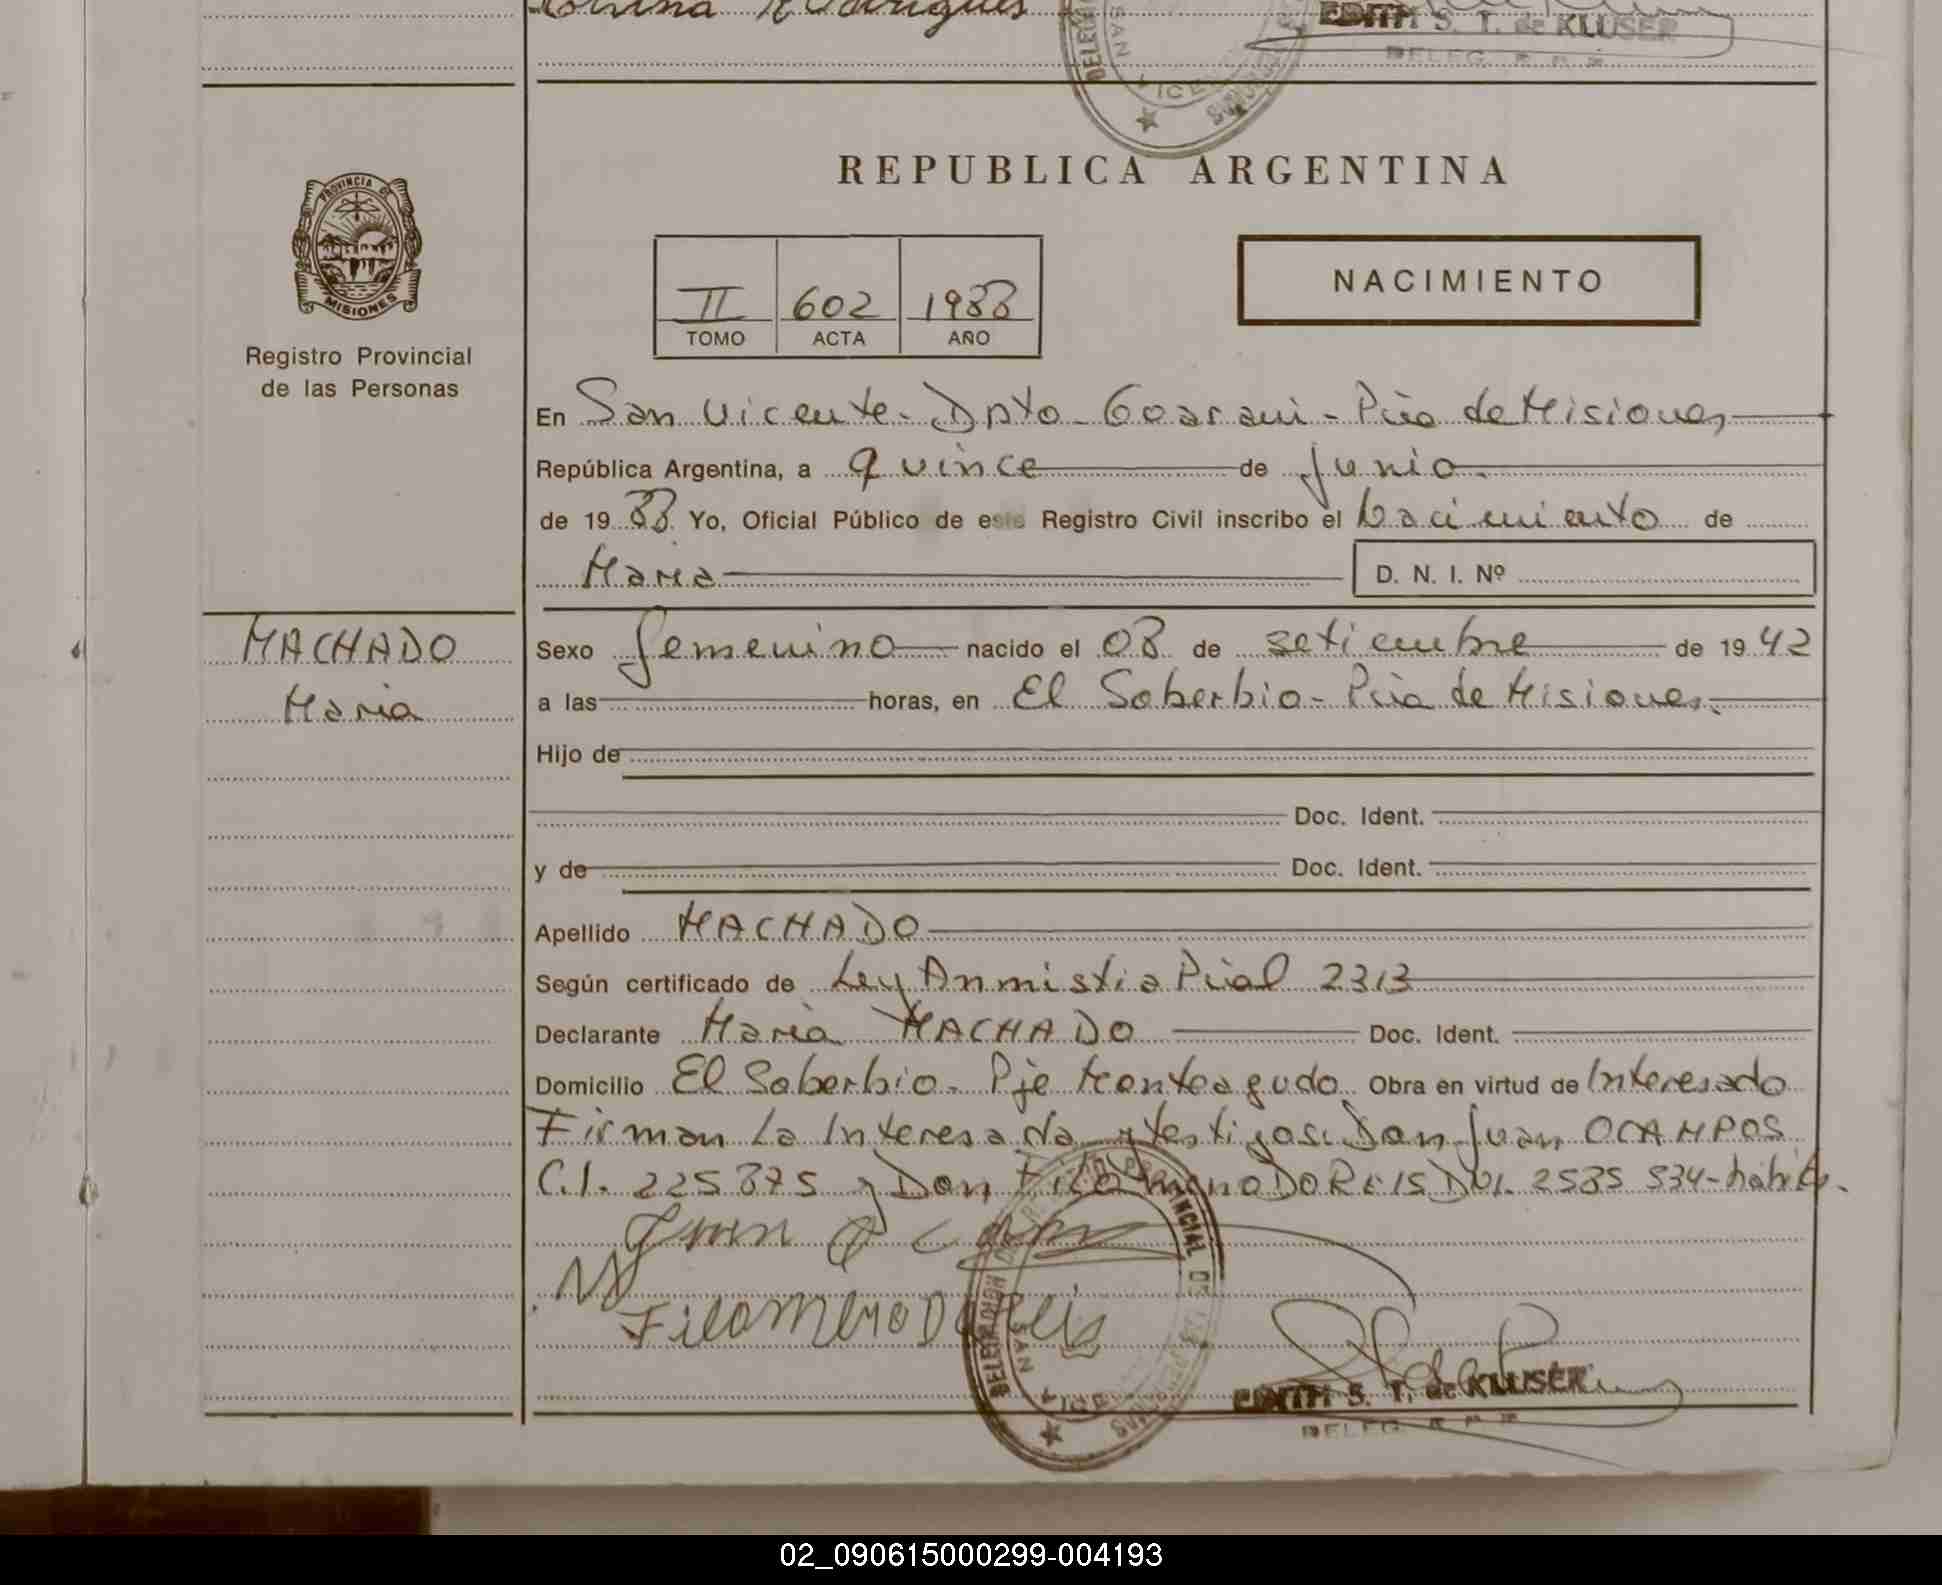 Rodrigues
EDITH S. T. de KLUSER
DELEG. R P P
SAN VICENTE
REPUBLICA ARGENTINA
PROVINCIA DE
MISIONES
NACIMIENTO
II 602 1988
TOMO ACTA AÑO
Registro Provincial
de las Personas
En San Vicente - Dpto - Guarani - Pcia de Misiones
República Argentina, a quince de junio.
de 1988 Yo, Oficial Público de este Registro Civil inscribo el Nacimiento de
Maria D. N. I. Nº
MACHADO
Maria
Sexo femenino nacido el 08 de setiembre de 1942
a las horas, en El Soberbio - Pcia de Misiones.
Hijo de
Doc. Ident.
y de Doc. Ident.
Apellido MACHADO
Según certificado de Ley Anmistia Pcial 2313
Declarante Maria MACHADO Doc. Ident.
Domicilio El Soberbio - Pje Monteagudo Obra en virtud de Interesado
Firman La Interesada y testigos: Don Juan OCAMPOS
C.I. 225875 y Don Filomeno DOREIS DNI. 2585 534 - hábiles.
Juan O Campo
Filomeno DoReis
DELEGACION DEL REGISTRO PROVINCIAL DE LAS PERSONAS
SAN VICENTE
EDITH S. T. de KLUSER
DELEG. R P P
02_090615000299-004193